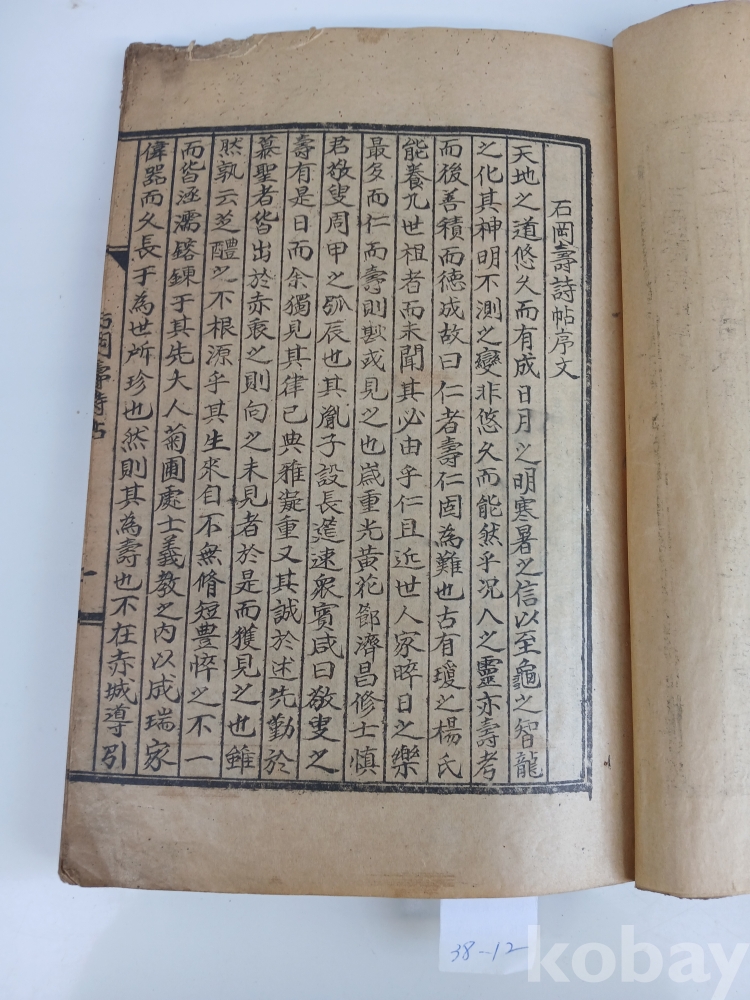 石岡壽詩帖序文
天地之道悠久而有成日月之明寒暑之信以至龜之智龍
之化其神明不測之變非悠久而能然乎况人之靈亦壽考
而後善積而德成故曰仁者壽仁固為難也古有瓊之楊氏
能養九世祖者而未聞其必由乎仁且近世人家晬日之樂
最多而仁而壽則尠或見之也歲重光黃花節濟昌修士愼
君敬叟周甲之弧辰也其胤子設長筵速衆賓咸曰敬叟之
壽有是日而余獨見其律己典雅凝重又其誠於述先勤於
慕聖者皆出於赤衷之則向之未見者於是而獲見之也雖
然孰云芝醴之不根源乎其生來自不無脩短豊悴之不一
而皆涵濡鎔鍊于其先大人菊圃處士義教之內以成瑞家
偉器而久長于為世所珍也然則其為壽也不在赤城導引
石岡壽詩帖
一
38-12
kobay